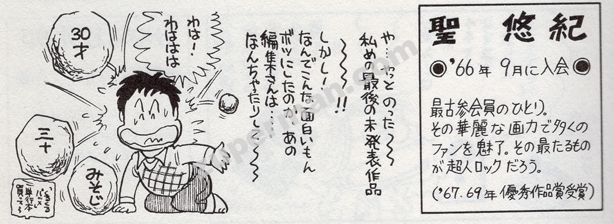 聖 悠紀
◉'66年 9月に入会◉
最古参会員のひとり。
その華麗な画力で多くの
ファンを魅了。その最たるもの
が超人ロックだろう。
('67.69年 優秀作品賞受賞)
や…やっとのった〜〜
私めの最後の未発表作品
〜〜〜!!
しかし!
なんでこんな面白いもん
ボツにしたの、あの
編集さんは…
なんちゃたりして〜〜
わは!
わははは
30才
三十
みそじ